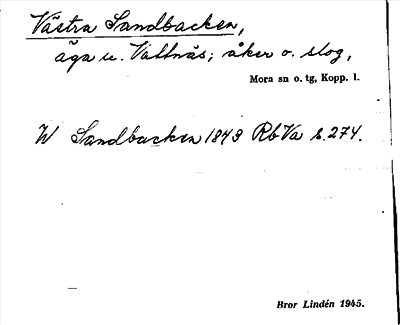 Västra Sandbacken,
äga u. Vattnäs; åker o. slog,
Mora sn o. tg, Kopp. l.
W Sandbacken 1843 RbVa s. 274.
Bror Lindén 1945.